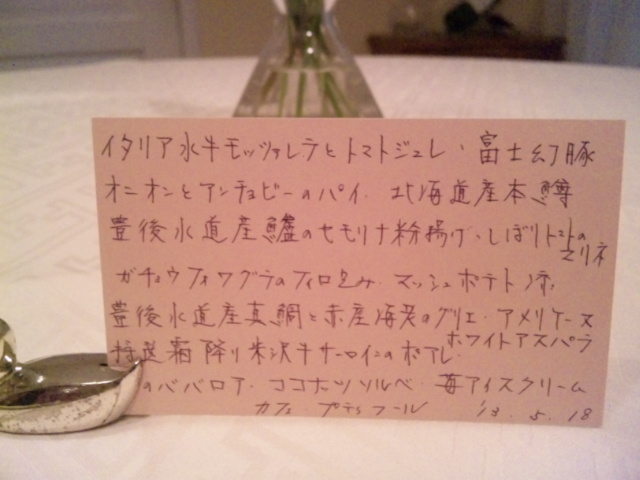 イタリア水牛モッツァレラとトマトジュレ、富士幻豚
オニオンとアンチョビーのパイ. 北海道産本鱒
豊後水道産鱸のセモリナ粉揚げ、しぼりトマトの
マリネ
ガチョウフォワグラのフィロ包み. マッシュポテト添
豊後水道産真鯛と赤座海老のグリエ. アメリケーヌ
ホワイトアスパラ
特送霜降り米沢牛サーロインのポアレ.
のババロア. ココナッツソルベ. 苺アイスクリーム
カフェ プティフール '13. 5. 18